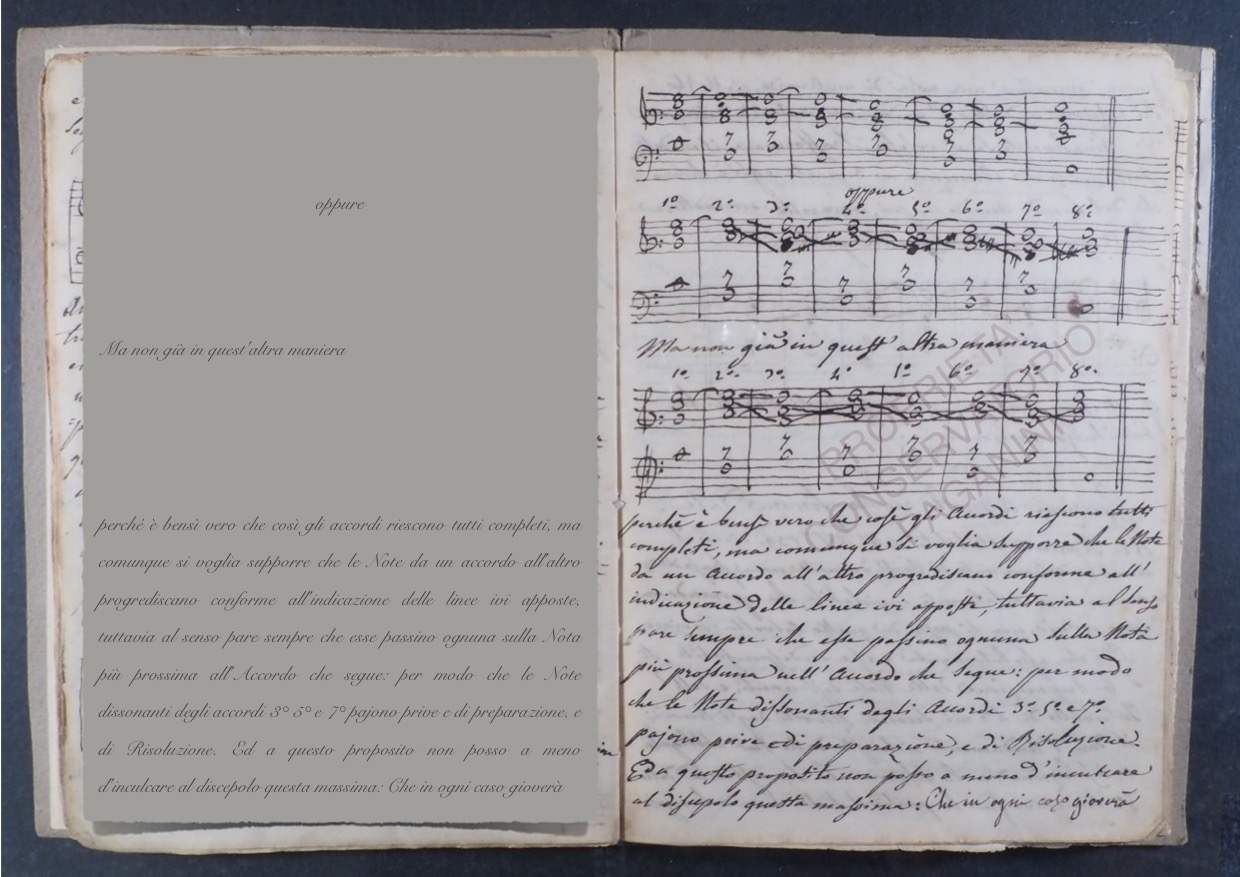 oppure
Ma non già in quest'altra maniera
perché è bensì vero che così gli accordi riescono tutti completi, ma
comunque si voglia supporre che le Note da un accordo all'altro
progrediscano conforme all'indicazione delle linee ivi apposte,
tuttavia al senso pare sempre che esse passino ognuna sulla Nota
più prossima all'Accordo che segue: per modo che le Note
dissonanti degli accordi 3° 5° e 7° pajono prive e di preparazione, e
di Risoluzione. Ed a questo proposito non posso a meno
d'inculcare al discepolo questa massima: Che in ogni caso gioverà
oppure
1º 2º 3º 4º 5º 6º 7º 8º
Ma non già in quest'altra maniera
1º 2º 3º 4º 1º 6º 7º 8º
perchè è bensì vero che così gli Accordi riescono tutti
completi, ma comunque si voglia supporre che le Note
da un Accordo all'altro progrediscano conforme all'
indicazione delle linee ivi apposte, tuttavia al senso
pare sempre che esse passino ognuna sulla Nota
più prossima nell'Accordo che segue: per modo
che le Note dissonanti degli Accordi 3º 5º e 7º
pajono prive e di preparazione, e di Risoluzione.
Ed a questo proposito non posso a meno d'inculcare
al discepolo questa massima: Che in ogni caso gioverà
PROPRIETA'
CONSERVATORIO
PAGANINI